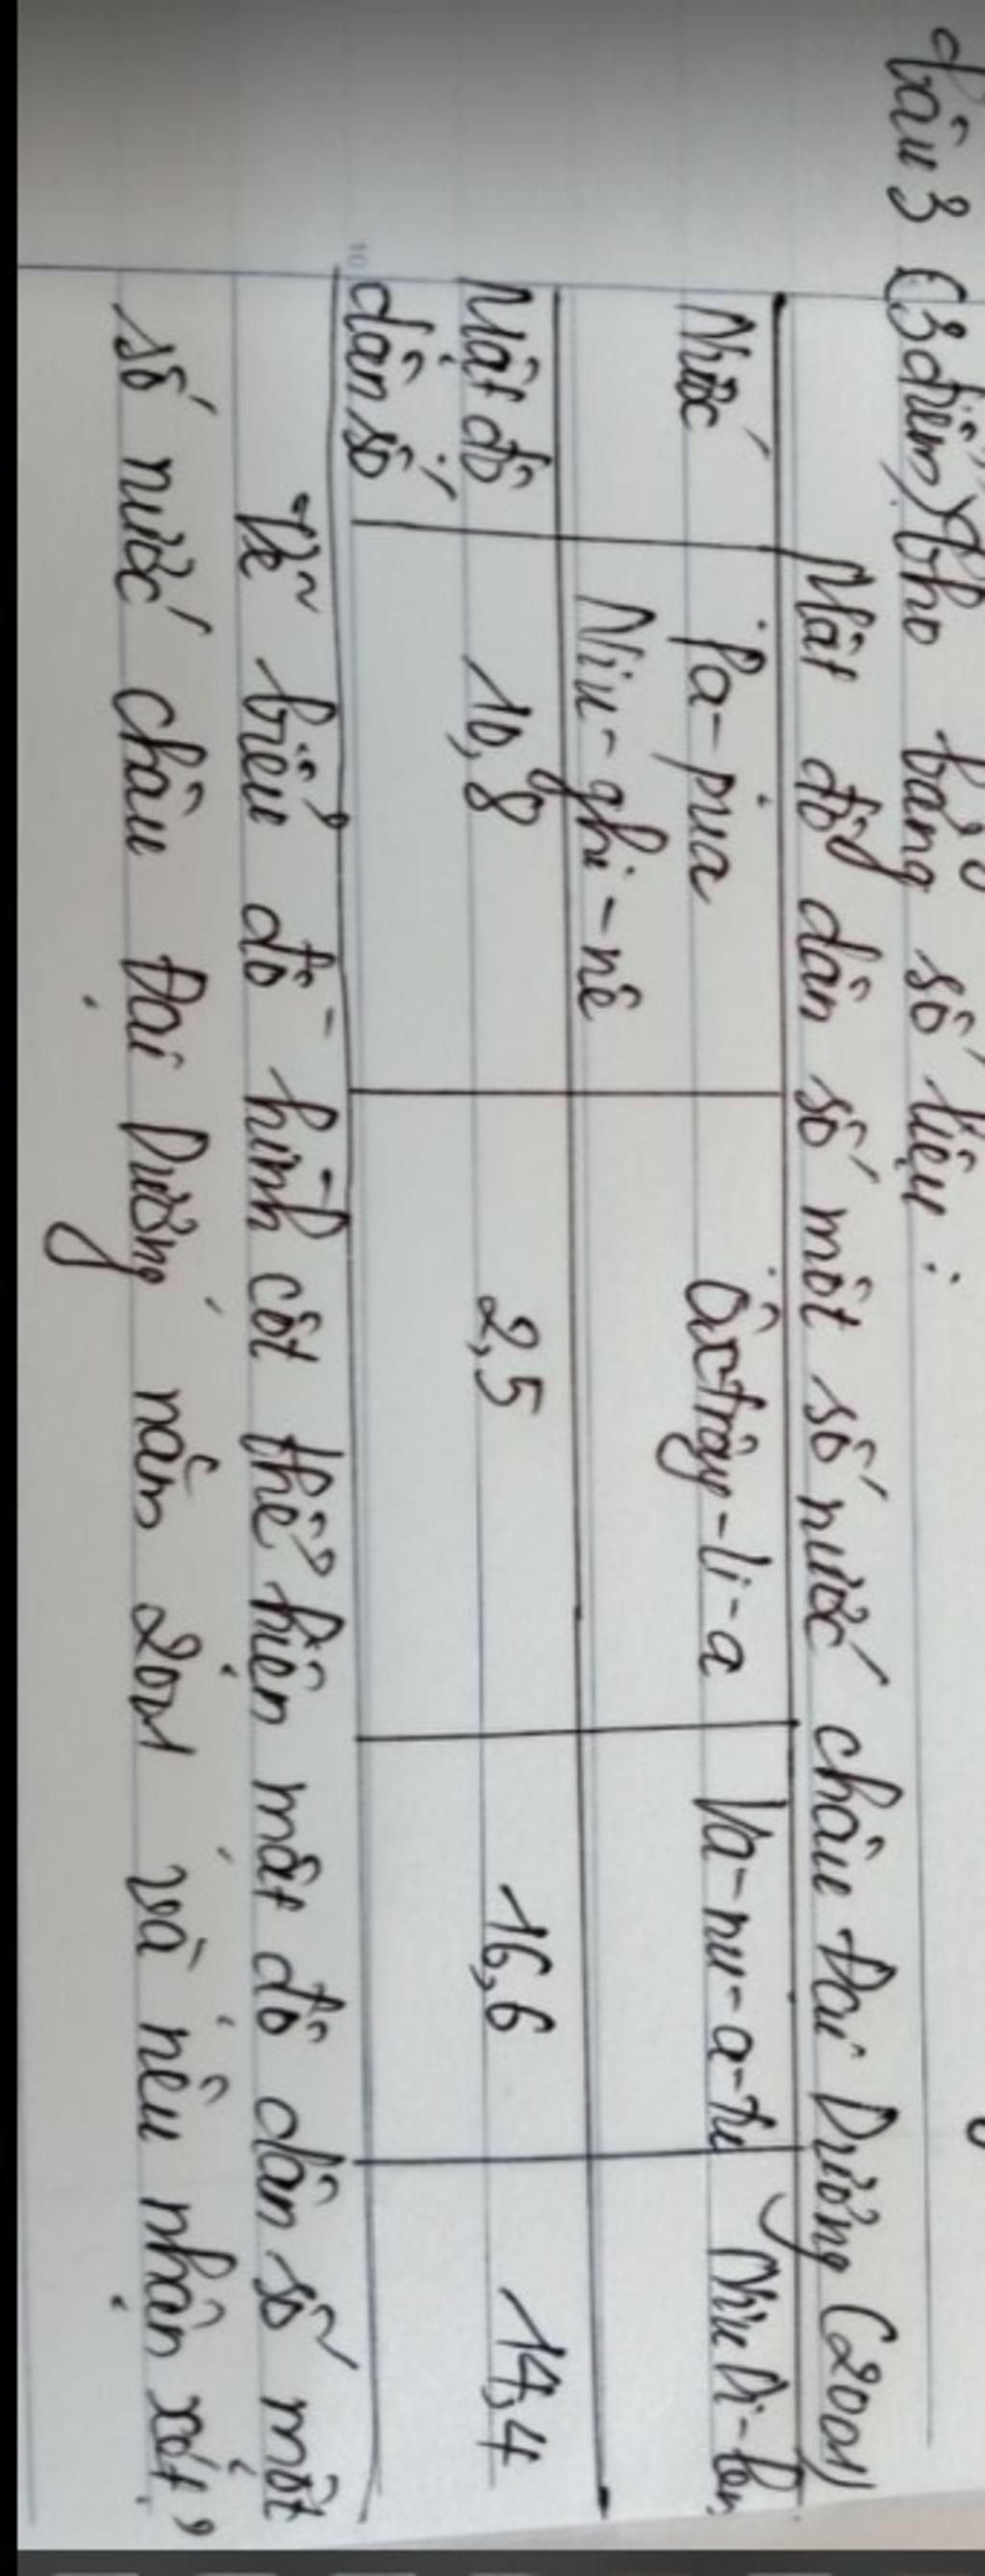 Câu 3 (3điểm) Cho bảng số liệu :
Mật độ dân số một số nước châu Đại Dương (2001)
Nước Pa-pua Niu-ghi-nê Ôxtrây-li-a Va-nu-a-tu Niu Di-len
Mật độ dân số 10,8 2,5 16,6 14,4
Vẽ biểu đồ hình cột thể hiện mật độ dân số một
số nước châu Đại Dương năm 2001 và nêu nhận xét,